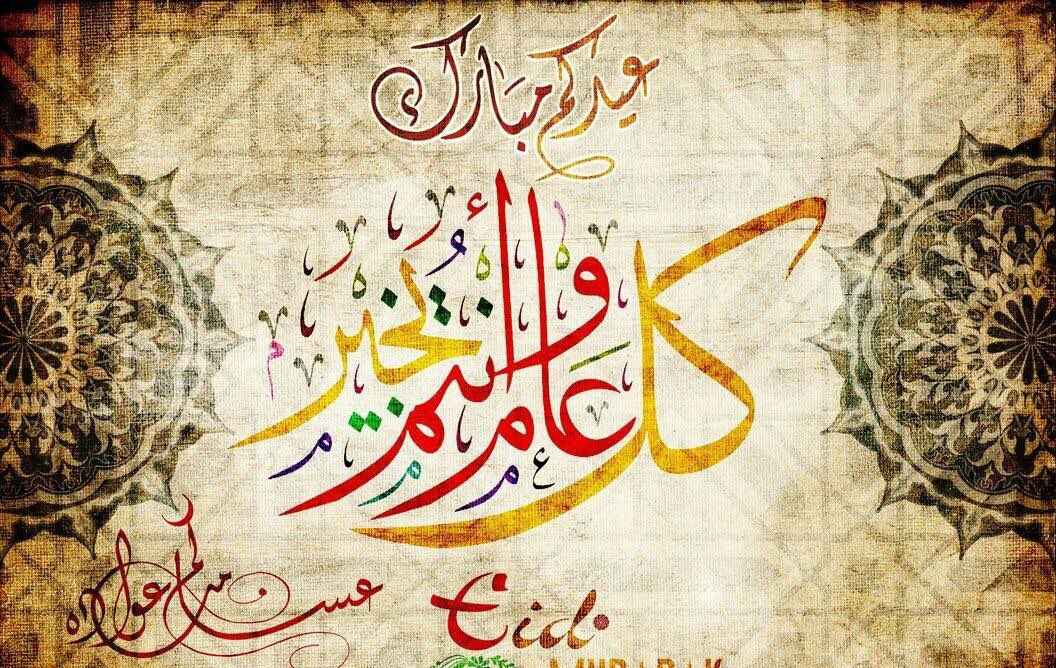 عيدكم مبارك
كل عام وأنتم بخير
عساكم من عواده
Eid
MUBARAK